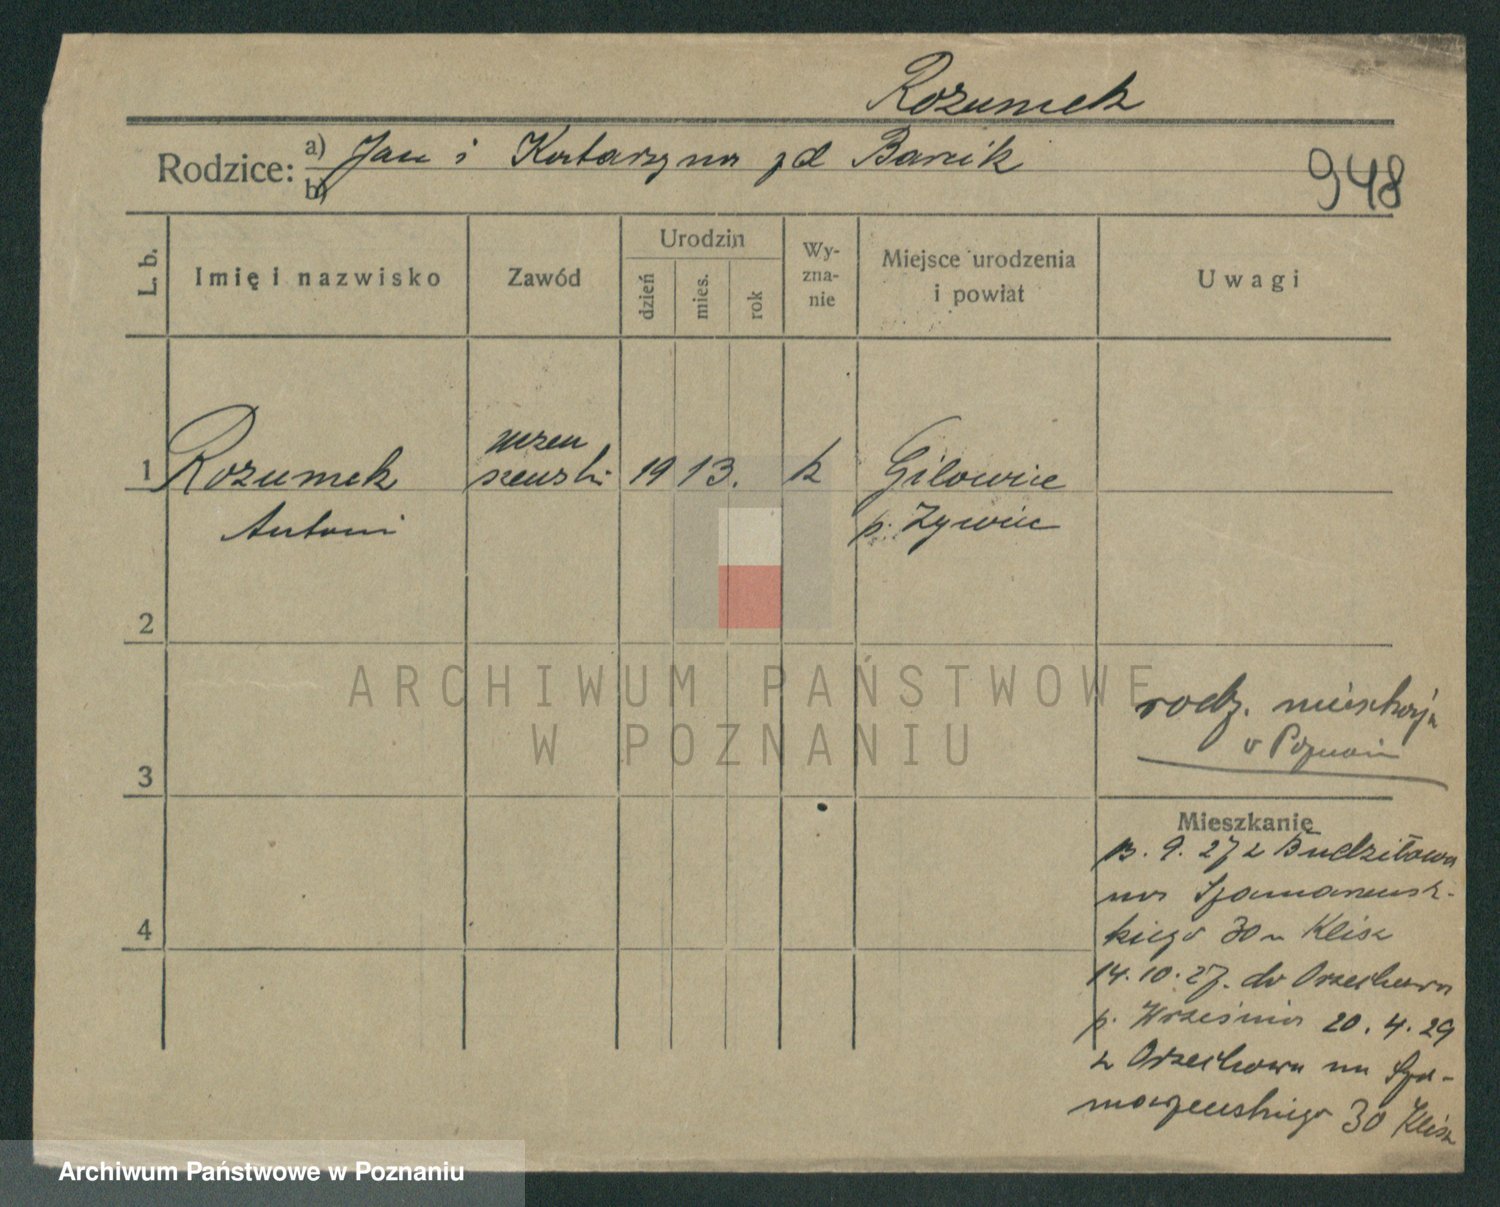 Rozumek
Rodzice: a) Jan i Katarzyna zd Barcik
b)
948
L. b.
Imię i nazwisko
Zawód
Urodzin
dzień
mies.
rok
Wy-
zna-
nie
Miejsce urodzenia
i powiat
Uwagi
1 Rozumek
Antoni
szewski
19 13.
k
Gilowice
p. Żywiec
2
3
4
rodz. mieszkają
w Poznaniu
Mieszkanie
13. 9. 27 z Budziłowa
na Szamarzews-
kiego 30 u Klisz
14. 10. 27. do Orzechowa
p. Września 20. 4. 29
z Orzechowa na Sza-
marzewskiego 30 Klisz
ARCHIWUM PAŃSTWOWE
W POZNANIU
Archiwum Państwowe w Poznaniu